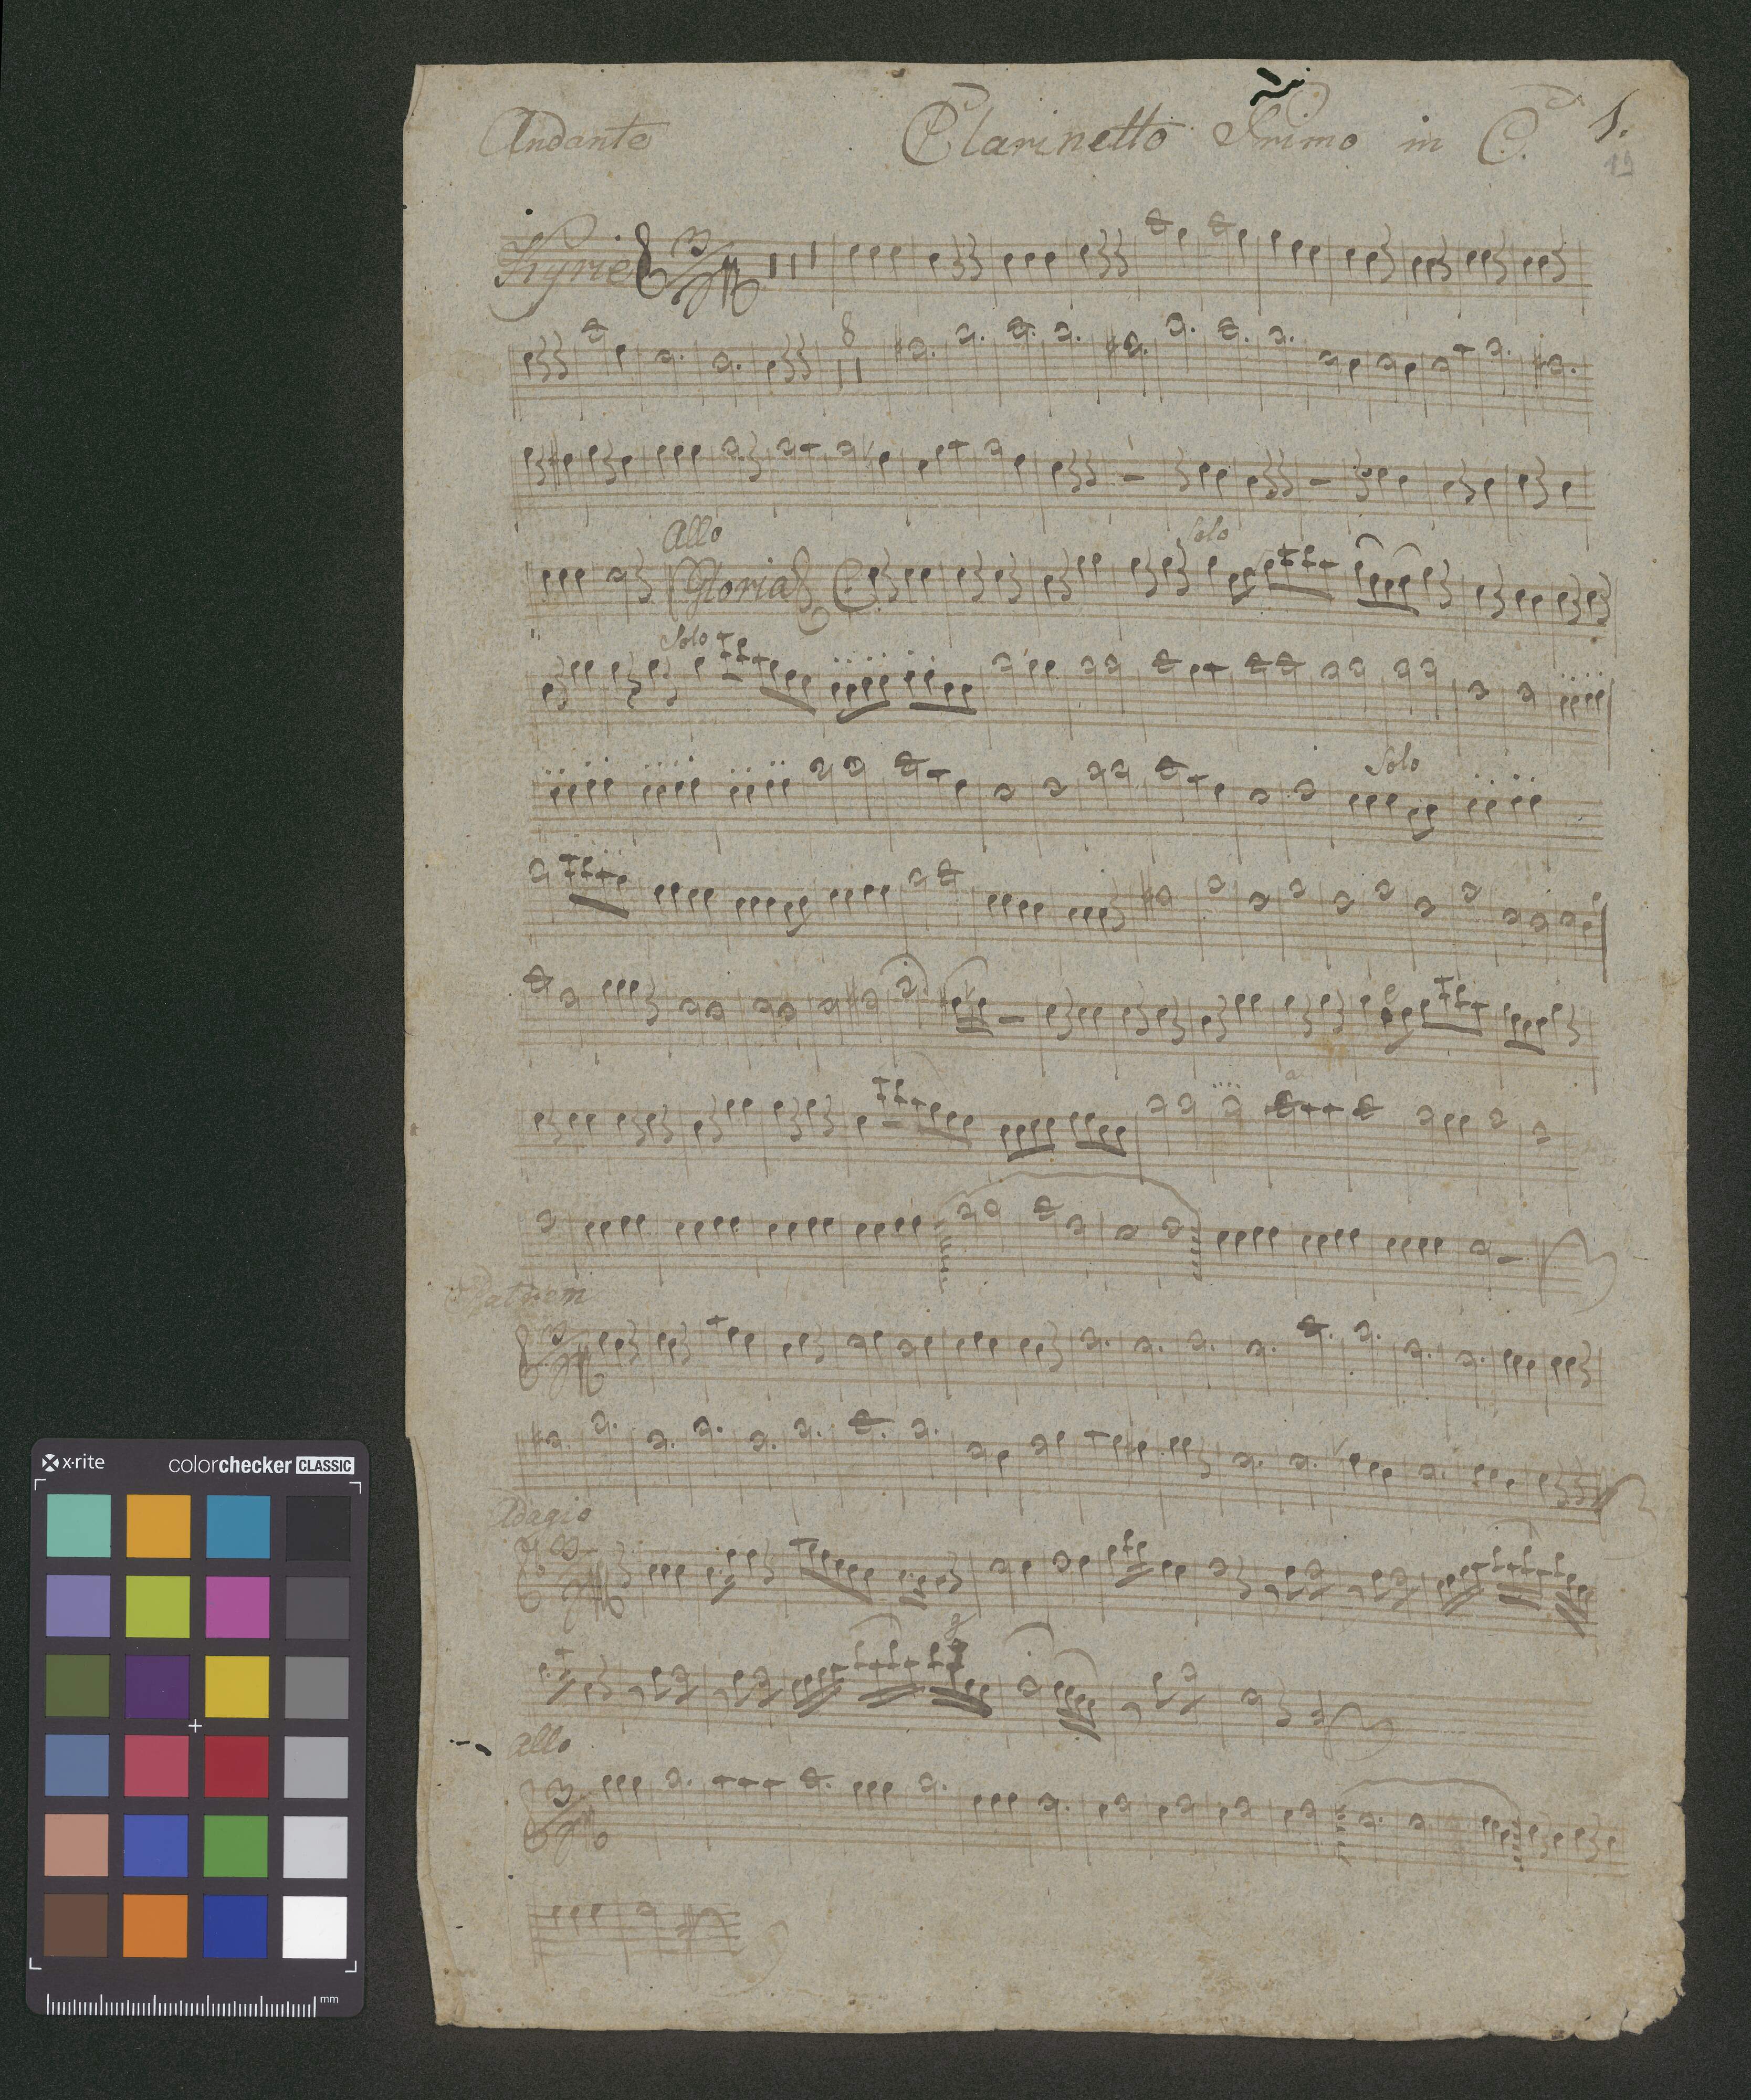 Andante Clarinetto Primo in C. 1.
19
Kyrie
8
Allo Solo
Gloria
Solo
Solo
Patrem
Adagio
allo
x·rite colorchecker CLASSIC
mm